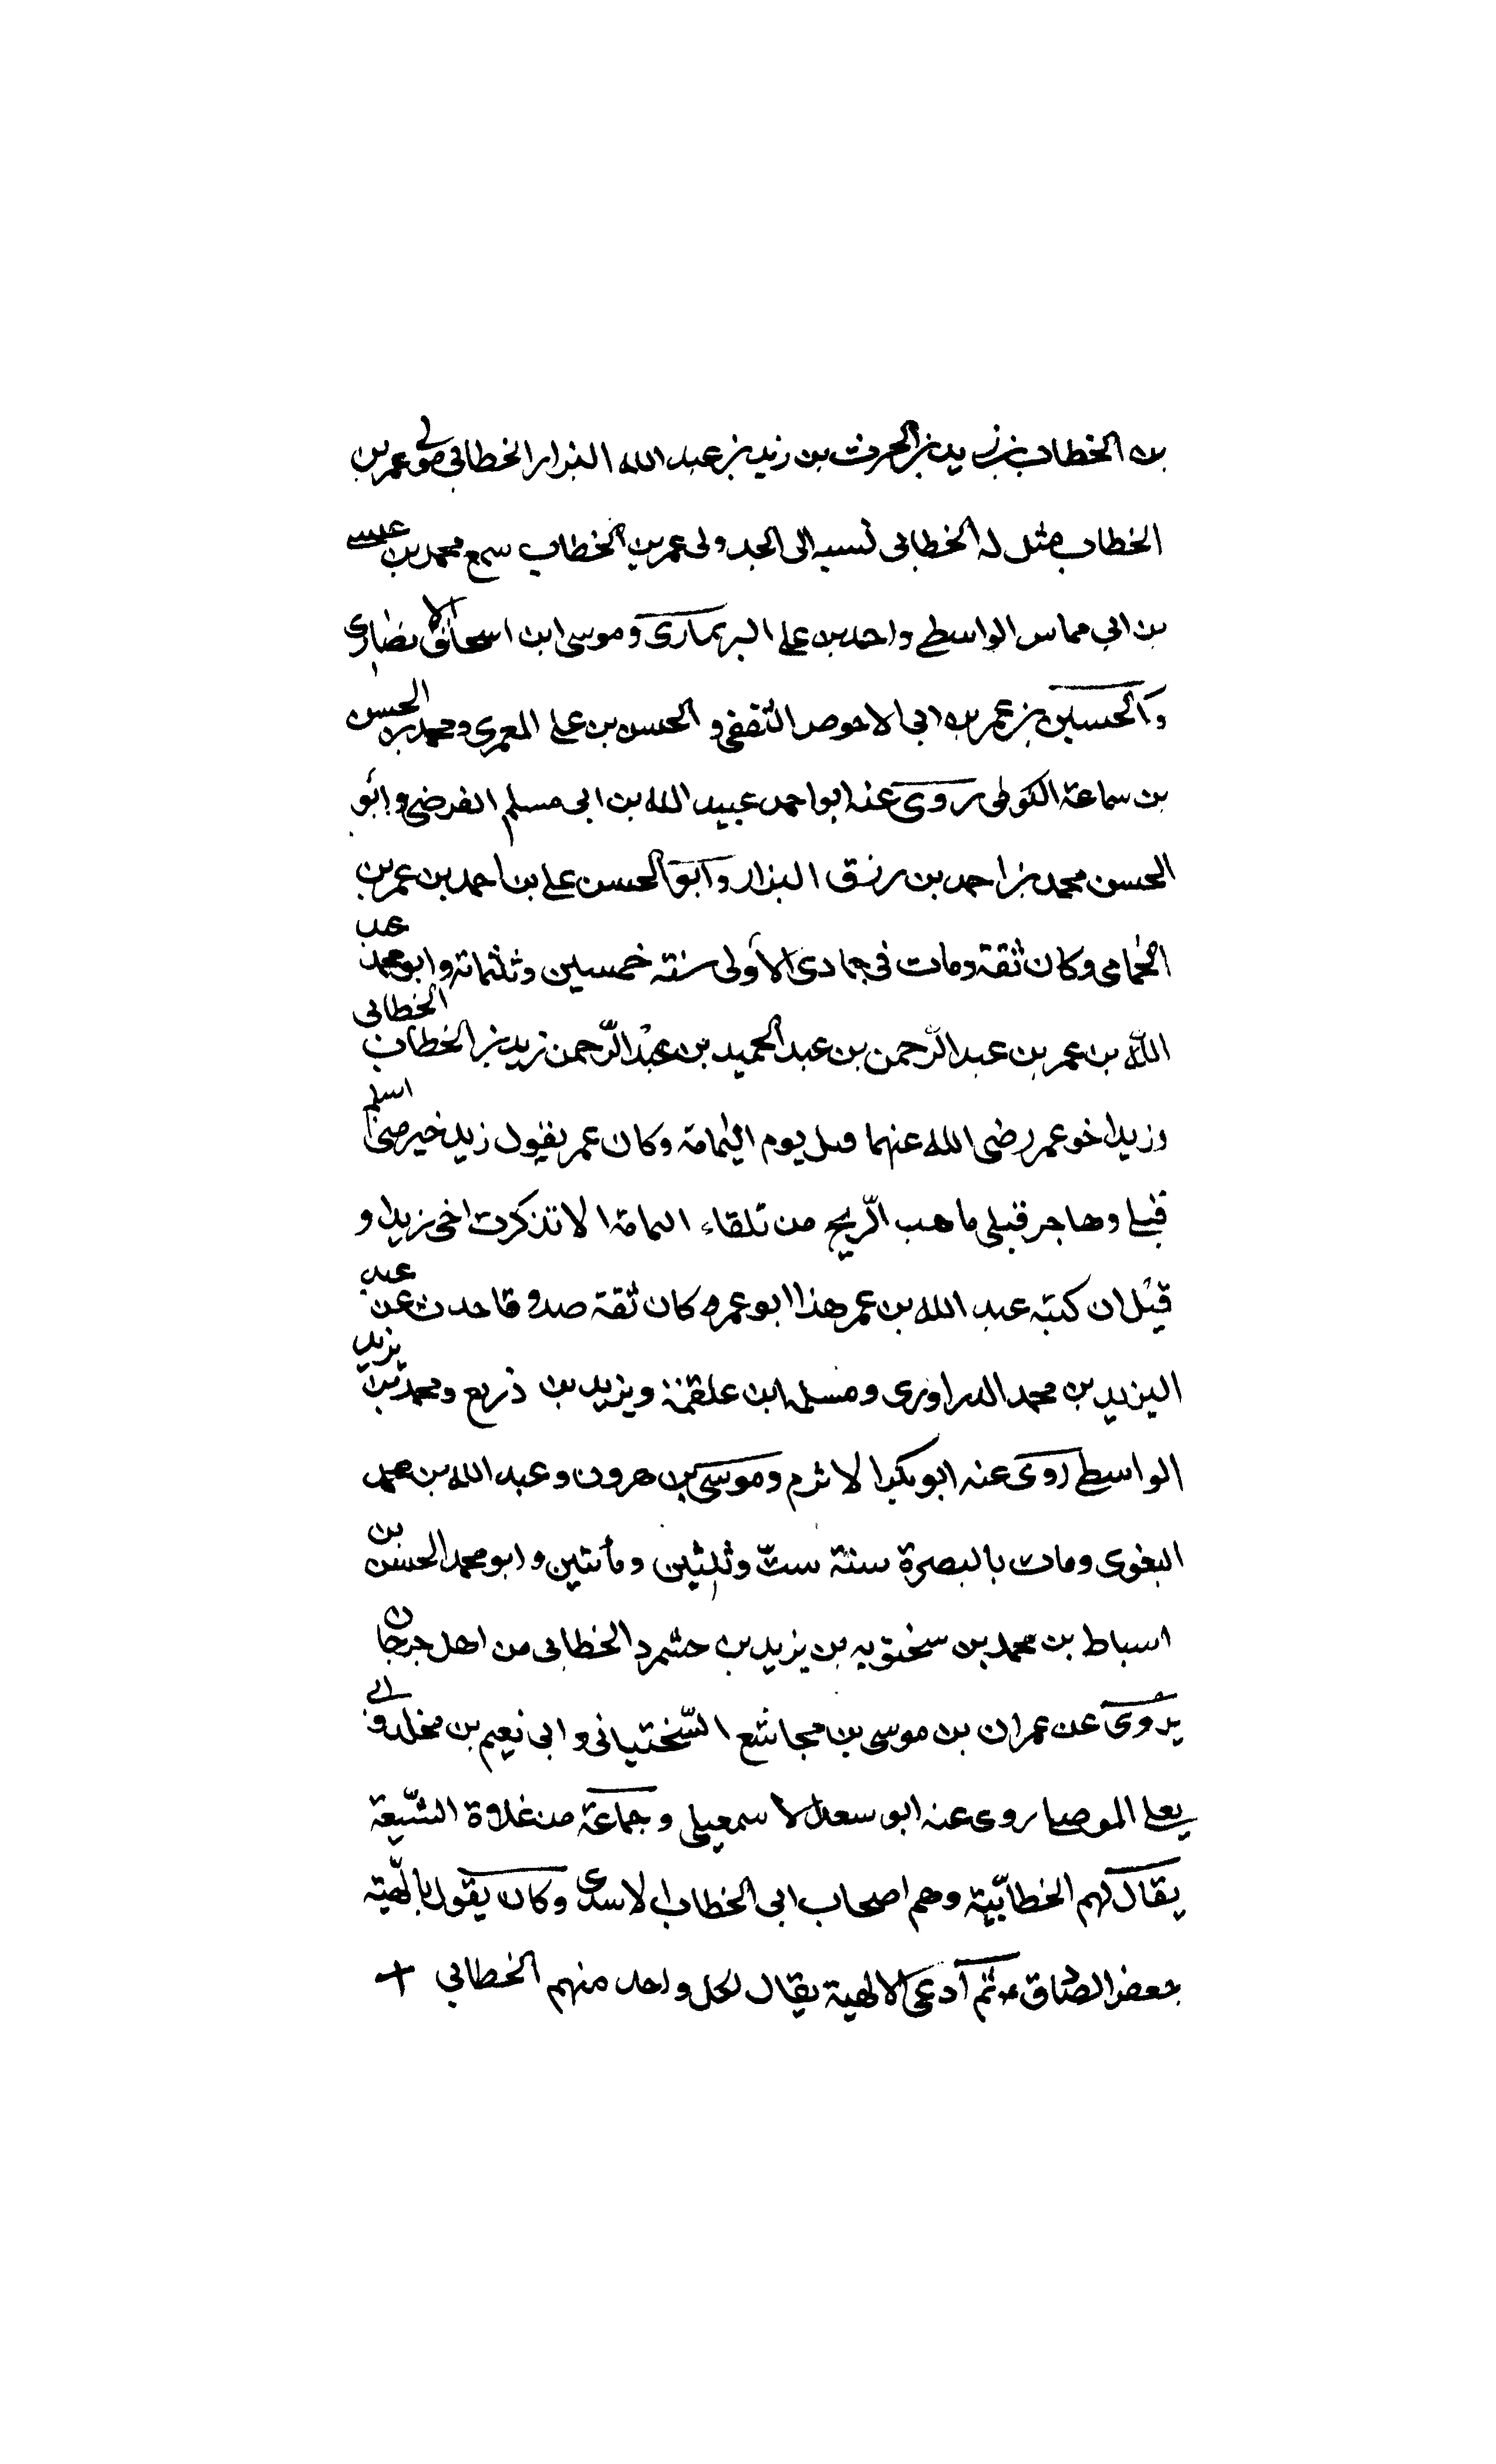 بن الخطاب بن زيد بن الحرث بن زيد بن عبد الله البزار الخطابي مولى عمر بن
الخطاب مثل له الخطابى نسبه الى الجد ولى عمر بن الخطاب سمع محمد بن عيسى
بن ابي مماس الواسطے واحد بن علے البربهارى وموسى ابن اسحاق الانصارى
والحسين بن عمر بن ابى الاحوص الثقفى و الحسن بن على المعمرى ومحمد بن الحسن
بن سماعة الكوفى روى عنه ابو احمد عبيد الله بن ابى مسلم الفرضى وابو
الحسن محمد بن احمد بن رزق البزار وابو الحسن على بن احمد بن عمر بن
الحمامى وكان ثقة ومات فى جمادى الاولى سنة خمسين وثلثمائة وابو محمد عبد
الله بن عمر بن عبد الرّحمن بن عبد الحميد بن عبد الرّحمن زيد بن الخطاب الخطابى
وزيد اخو عمر رضى الله عنهما قتل يوم اليمامة وكان عمر يقول زيد خير منى اسلم
قبلى وهاجر قبلى ما هب الرّيح من تلقاء اليمامة الا تذكرت اخى زيدا و
قيل ان كنيته عبد الله بن عمر هذا ابو عمر وكان ثقة صدوقا حدث عن عبد
اليزيد بن محمد الدراوردى ومسلمة ابن علقمة ويزيد بن ذريع ومحمد بن يزيد
الواسطے روى عنه ابو بكر الاثرم وموسى بن هرون وعبد الله بن محمد
البغوى ومات بالبصرة سنة ستّ وثلثين ومأتين وابو محمد الحسن بن
اسباط بن محمد بن سختويه بن يزيد بن حشمرد الخطابى من اهل جرجان
يروى عن عمران بن موسى بن مجاشع السّختيانى و ابى نعيم بن مخلد و ابى
يعلے الموصلے روى عنه ابو سعد الاسمعيلى و جماعة من غلاة الشّيعة
يقال لهم الخطابّية وهم اصحاب ابى الخطاب الاسدى وكان يقول بالٰهية
جعفر الصادق ثم ادعى الالهية يقال لكل واحد منهم الخطابي +